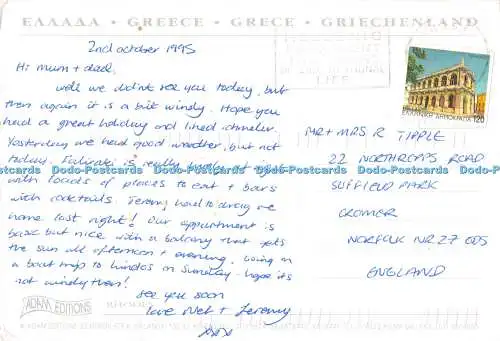 ΕΛΛΑΔΑ - GREECE - GRECE - GRIECHENLAND
2nd october 1995
Hi mum + dad,
well we didn't see you today, but
then again it is a bit windy. Hope you
had a great holiday and liked
Yesterday we had good weather, but not
today. Faliraki is really at night
with loads of places to eat + bars
with cocktails. Jeremy had to carry me
home last night! Our appartment is
basic but nice with a balcony that gets
the sun all afternoon + evening. Going on
a boat trip to Lindos on Sunday - hope it's
not windy then!
see you soon
love Net + Jeremy
xxx
LIFE
ΕΛΛΗΝΙΚΗ ΔΗΜΟΚΡΑΤΙΑ 120
MR + MRS R TIPPLE
22 NORTHREPPS ROAD
SUFFIELD PARK
CROMER
NORFOLK NR27 0DS
ENGLAND
Dodo-Postcards Dodo-Postcards Dodo-Postcards Dodo-Postcards Dodo-Postcards Dodo-Postcards
ADAM EDITIONS